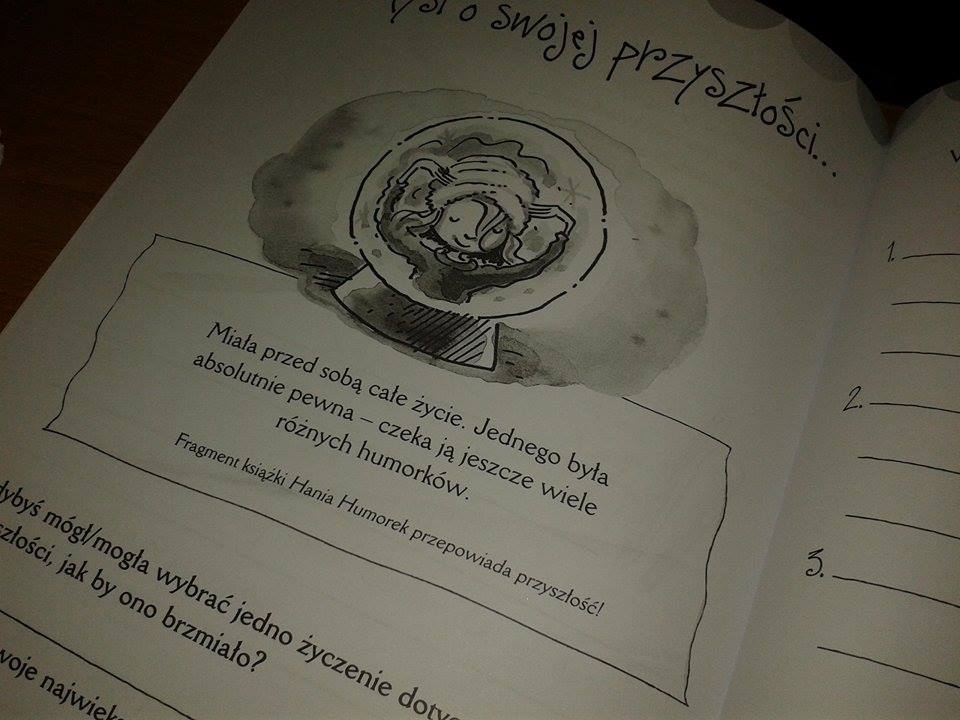 o swojej przyszłości...
Miała przed sobą całe życie. Jednego była
absolutnie pewna – czeka ją jeszcze wiele
różnych humorków.
Fragment książki Hania Humorek przepowiada przyszłość!
mógł/mogła wybrać jedno życzenie
jak by ono brzmiało?
1.
2.
3.